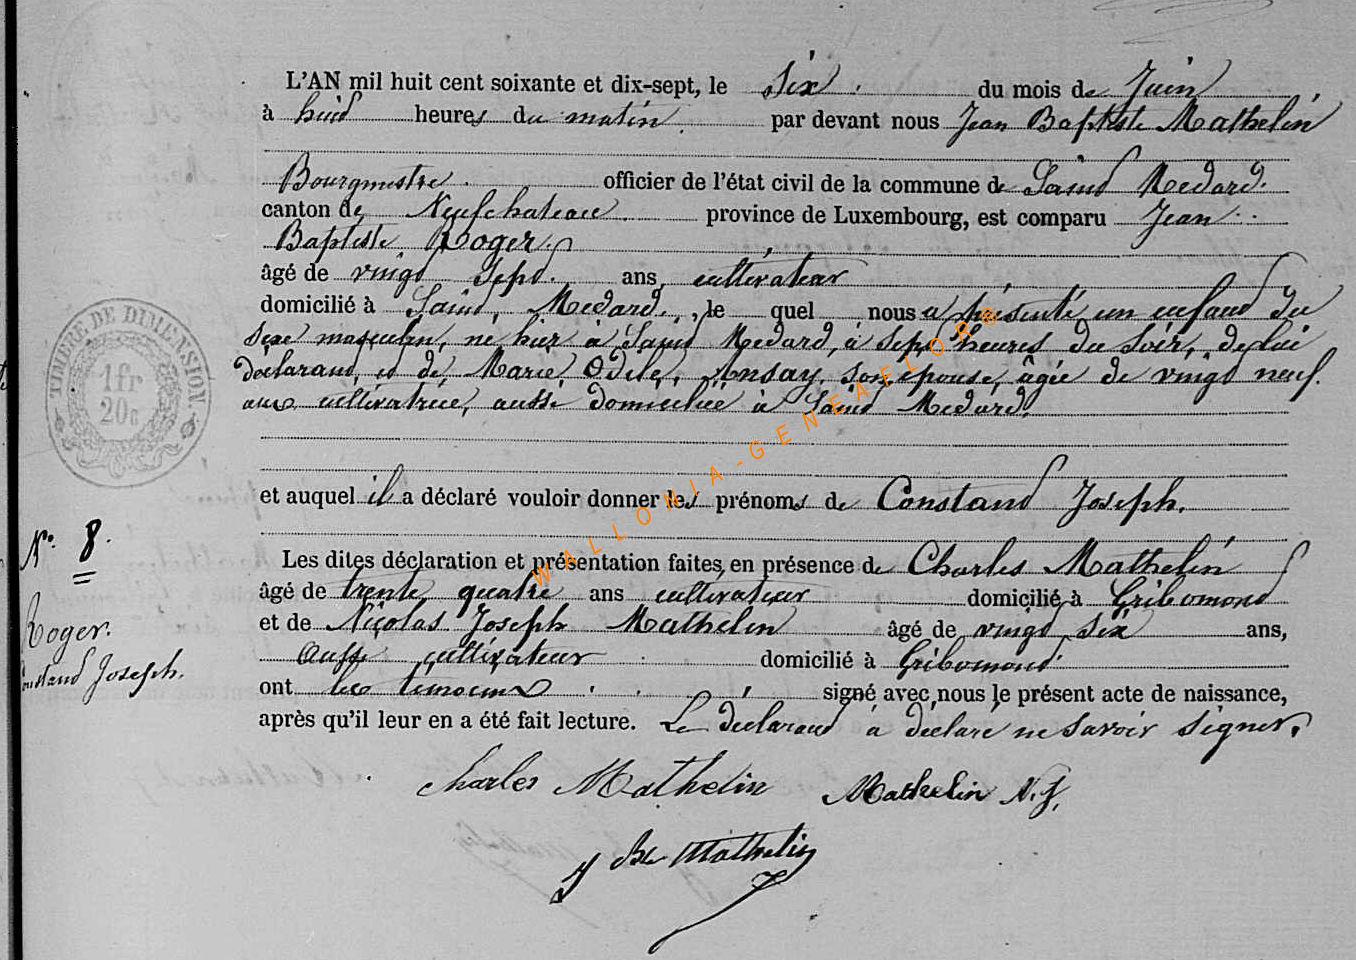 L'AN mil huit cent soixante et dix-sept, le six du mois de Juin,
à huit heures du matin par devant nous Jean Baptiste Mathelin
Bourgmestre officier de l'état civil de la commune de Saint Medard.
canton de Neufchateau province de Luxembourg, est comparu Jean
Baptiste Roger.
âgé de vingt sept ans, cultivateur
domicilié à Saint, Medard, le quel nous a présenté un enfant du
sexe masculin, né hier à Saint Medard, à sept heures du soir, de lui
déclarant, et de Marie Odile, Ansay, son épouse, âgée de vingt neuf
ans cultivatrice, aussi domiciliée à Saint Medard.
et auquel il a déclaré vouloir donner les prénoms de Constant Joseph.
Les dites déclaration et présentation faites en présence de Charles Mathelin
âgé de trente quatre ans cultivateur domicilié à Gribomont
et de Nicolas Joseph Mathelin âgé de vingt six ans,
aussi cultivateur domicilié à Gribomont
ont les témoins signé avec nous le présent acte de naissance,
après qu'il leur en a été fait lecture. Le déclarant à déclaré ne savoir signer.
Charles Mathelin Mathelin N. J.
J Bte Mathelin
N° 8
Roger.
Constant Joseph.
TIMBRE DE DIMENSION
1fr
20c
WALLONIA-GENEAELO.BE